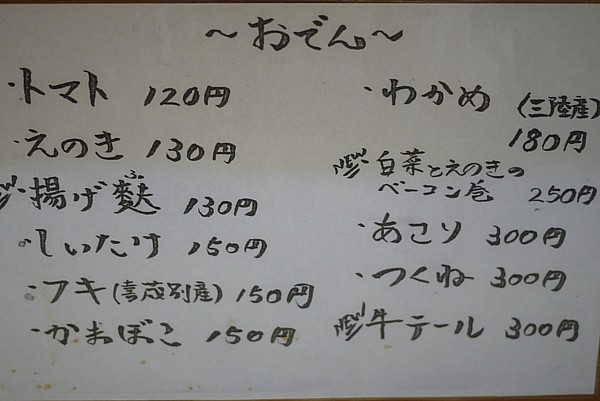 ～おでん～
・トマト 120円
・えのき 130円
揚げ麩 ふ 130円
・しいたけ 150円
・フキ(喜茂別産) 150円
・かまぼこ 150円
・わかめ (三陸産)
180円
白菜とえのきの
ベーコン巻 250円
・あさり 300円
・つくね 300円
牛テール 300円